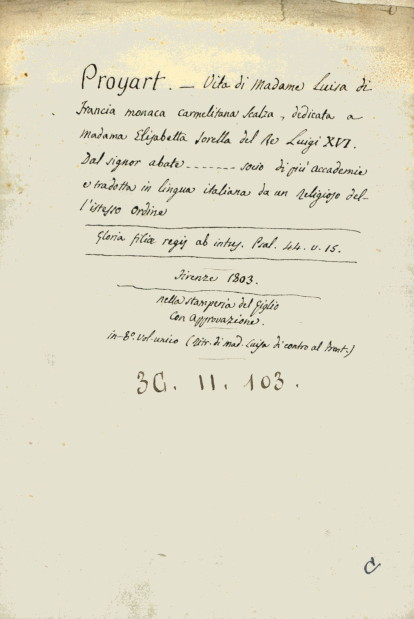 Proyart. — Vita di Madame Luisa di
Francia monaca carmelitana Scalza, dedicata a
madama Elisabetta Sorella del Re Luigi XVI.
Dal signor abate ------- socio di più accademie
e tradotta in lingua italiana da un Religioso del-
l'istesso ordine
Gloria filiæ regis ab intus. Psal. 44. v. 15.
Firenze 1803.
nella stamperia del Giglio
Con approvazione.
in-8° vol. unico (Ritr. di mad. Luisa di contro al front.)
3G. 11. 103.
C